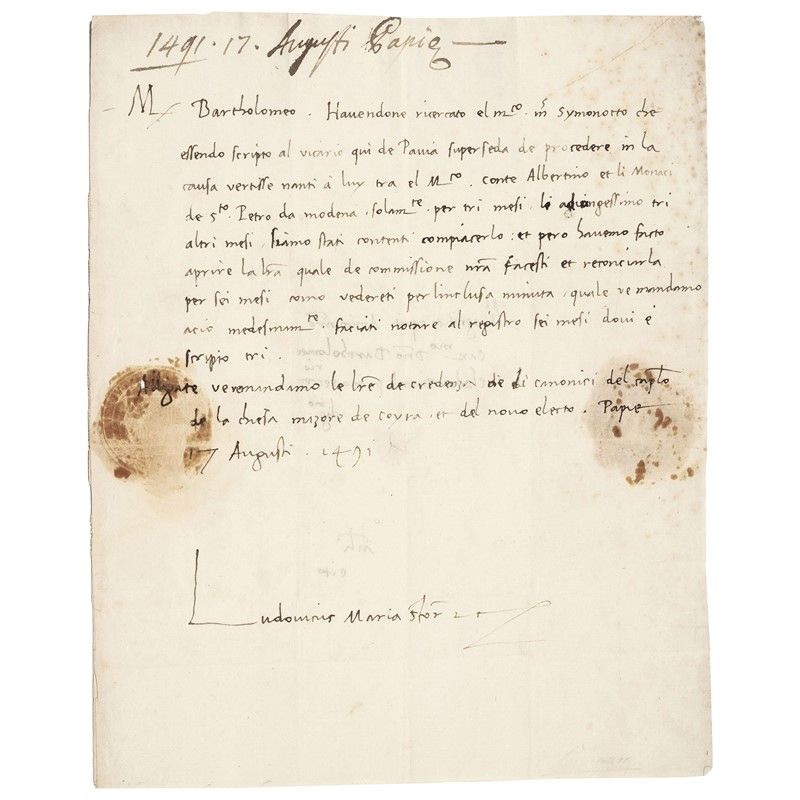 1491 · 17 · Augusti Papie
M Bartholomeo . Havendone ricercato el m.co m. Symonotto che
essendo scripto al vicario qui de Pavia superseda de procedere in la
causa vertisse nanti à luy tra el M.co . conte Albertino et li Monaci
de s.to Petro da modena . solam.te . per tri mesi . li adiongessimo tri
altri mesi . siamo stati contenti compiacerlo : et pero havemo facto
aprire la lra quale de commissione nra facesti et reconciurla
per sei mesi como vedereti per linclusa minuta . quale ve mandamo
acio medesimam.te . faciati notare al registro sei mesi dovi é
scripto tri .
Alligate ve remandamo le lre de credenza de li canonici del caplo
de la chiesa mazore de Coyra . et del novo electo . Papie
17 Augusti . 1491
Ludovicus Maria Sfor